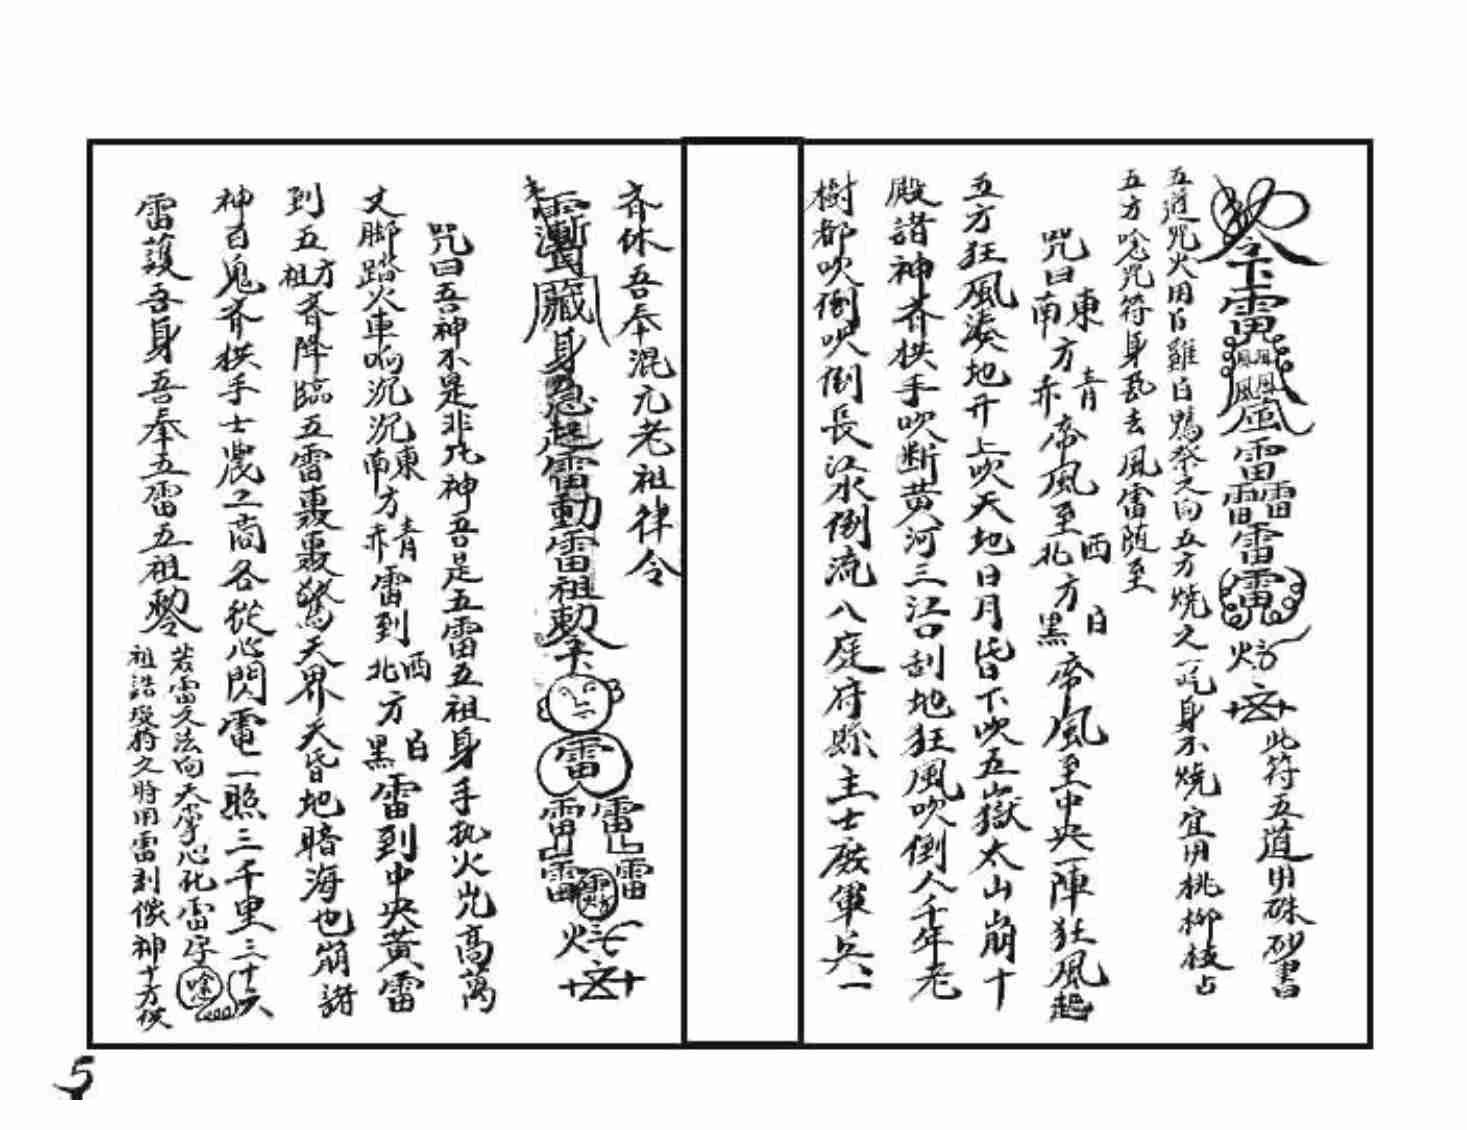 勅令下雷風雷雷雷雷雷
此符五道用硃砂書
五道咒火用白雞白鴨祭之向五方燒之一吃身不燒宜用桃柳枝占
五方唸咒符身丟去風雷随至
咒曰東南方青赤帝風至西北方白黑帝風至中央一陣狂風起
五方狂風湊地开上吹天地日月昏下吹五嶽太山崩十
殿諸神齐拱手吹断黄河三江口刮地狂風吹倒人千年老
樹都吹倒吹倒長江水倒流八庭府縣主士殿軍兵一
齐休吾奉混元老祖律令
藏身急起雷動雷祖勅下
雷
雷雷
雷雷
咒曰吾神不是非凡神吾是五雷五祖身手执火光高萬
丈脚踏火車响沉沉東南方青赤雷到西北方白黑雷到中央黄雷
到五方五祖齐降臨五雷轟轟驚天界天昏地暗海也崩諸
神百鬼齐拱手士農工商各從心閃電一照三千里三十六
雷護吾身吾奉五雷五祖勅令
若雷久法向天掌心化雷字
祖誥受持之時用雷刻像神十方供
5